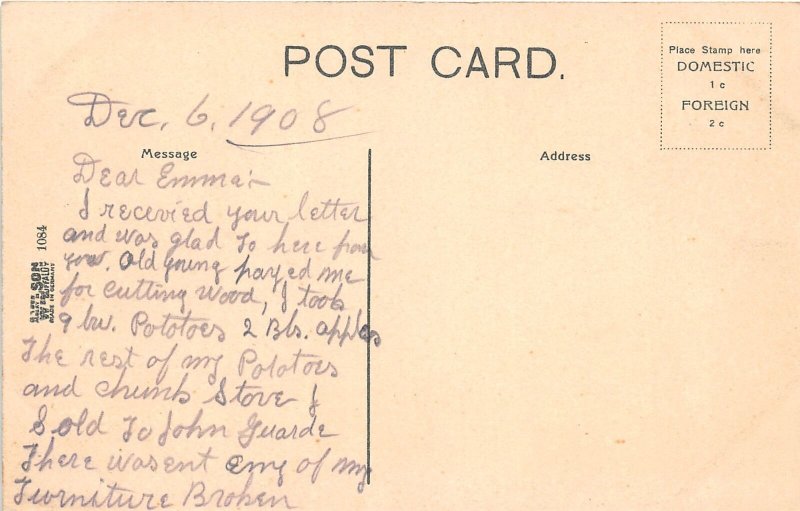 POST CARD.
Place Stamp here
DOMESTIC
1 c
FOREIGN
2 c
Dec. 6, 1908
Message
Address
Dear Emma:-
I recevied your letter
and was glad To here from
you. Old young payed me
for cutting wood, I took
9 bu. Pototoes 2 Bbs. apples
The rest of my Pototoes
and chunk Stove I
Sold To John Guarde
There wasent eny of my
Furniture Broken
1084
SON
BUFFALO
MADE IN GERMANY